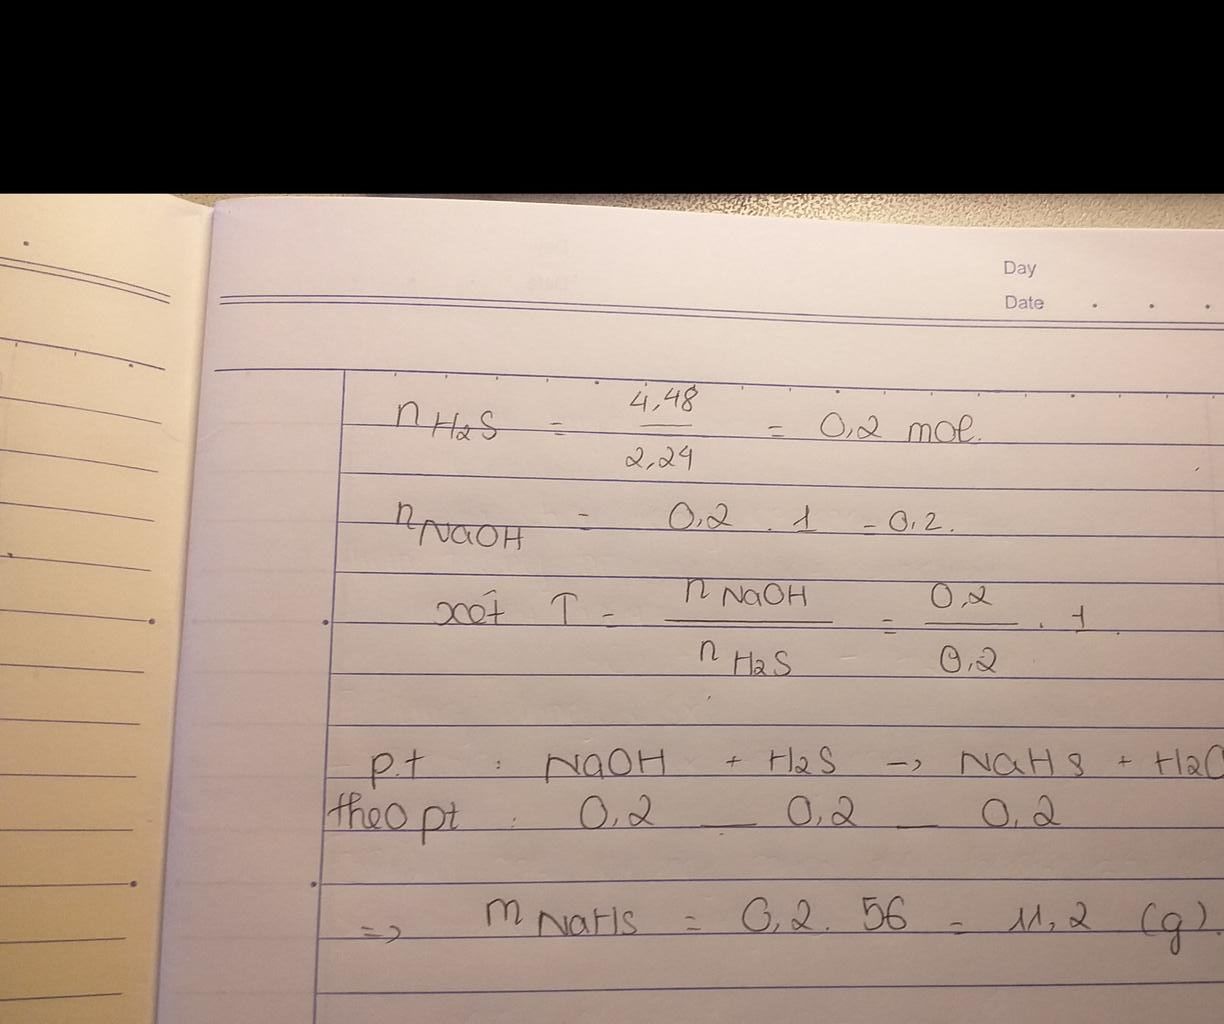 Day
Date
nH2S = 4,48 / 2,24 = 0,2 mol.
nNaOH = 0,2 . 1 = 0,2.
xét T = nNaOH / nH2S = 0,2 / 0,2 . 1
p.t : NaOH + H2S -> NaHS + H2O
theo pt : 0,2 — 0,2 — 0,2
=> mNaHS = 0,2. 56 = 11,2 (g).